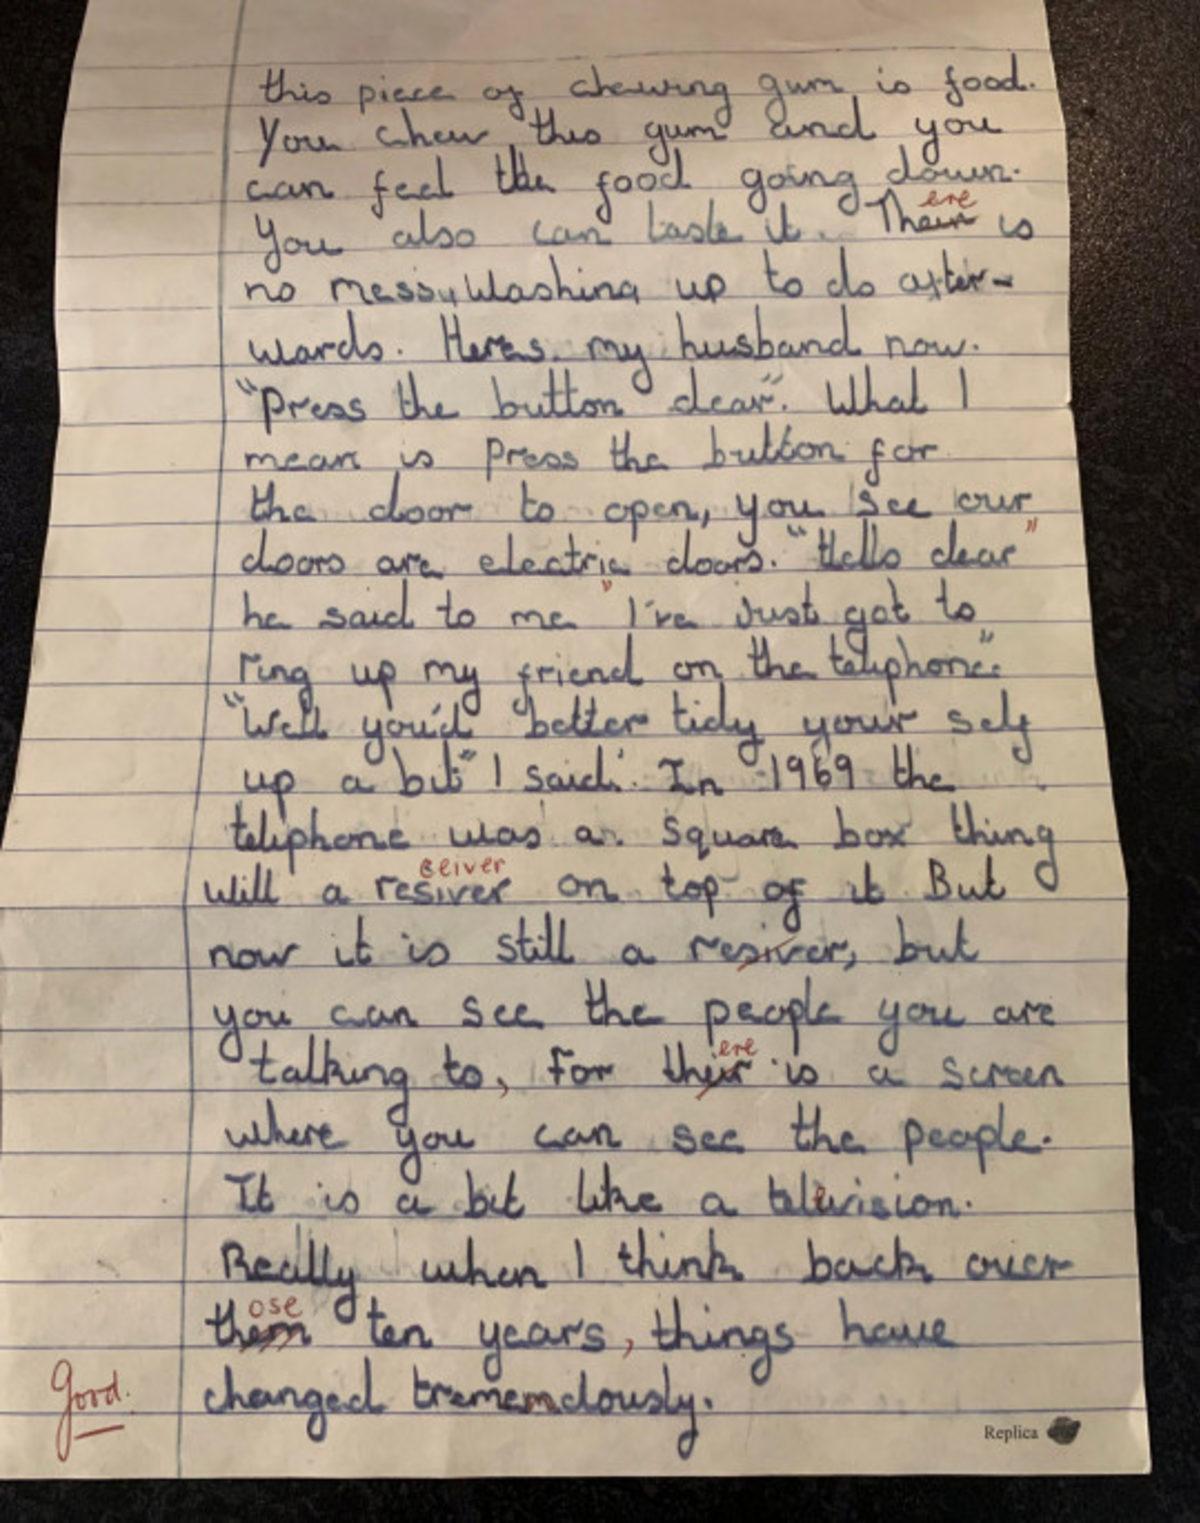 this piece of chewing gum is food.
You chew this gum and you
can feel the food going down.
ere
You also can taste it. Their is
no messy washing up to do after-
wards. Heres my husband now.
"Press the button dear". What I
mean is press the button for
the door to open, you see our
doors are electric doors. "Hello dear"
he said to me "I've just got to
ring up my friend on the teliphone"
"Well you'd better tidy your self
up a bit" I said. In 1969 the
teliphone was a square box thing
ceiver
will a resiver on top of it But
now it is still a resiver, but
you can see the people you are
ere
talking to, for their is a screen
where you can see the people.
It is a bit like a television.
Really when I think back over
ose
them ten years, things have
Good.
changed trememdously.
Replica